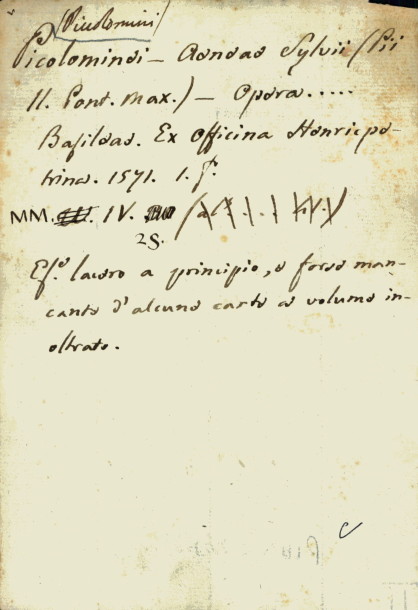 (Piccolomini)
Picolominei — Aeneae Sylvii (Pii
II. Pont. Max.) — Opera.....
Basileae. Ex Officina Henricpe-
trina. 1571. 1. f.º
MM. IV.
28.
Es.º lacero a principio, e forse man-
cante d'alcune carte a volume in-
oltrato.
C